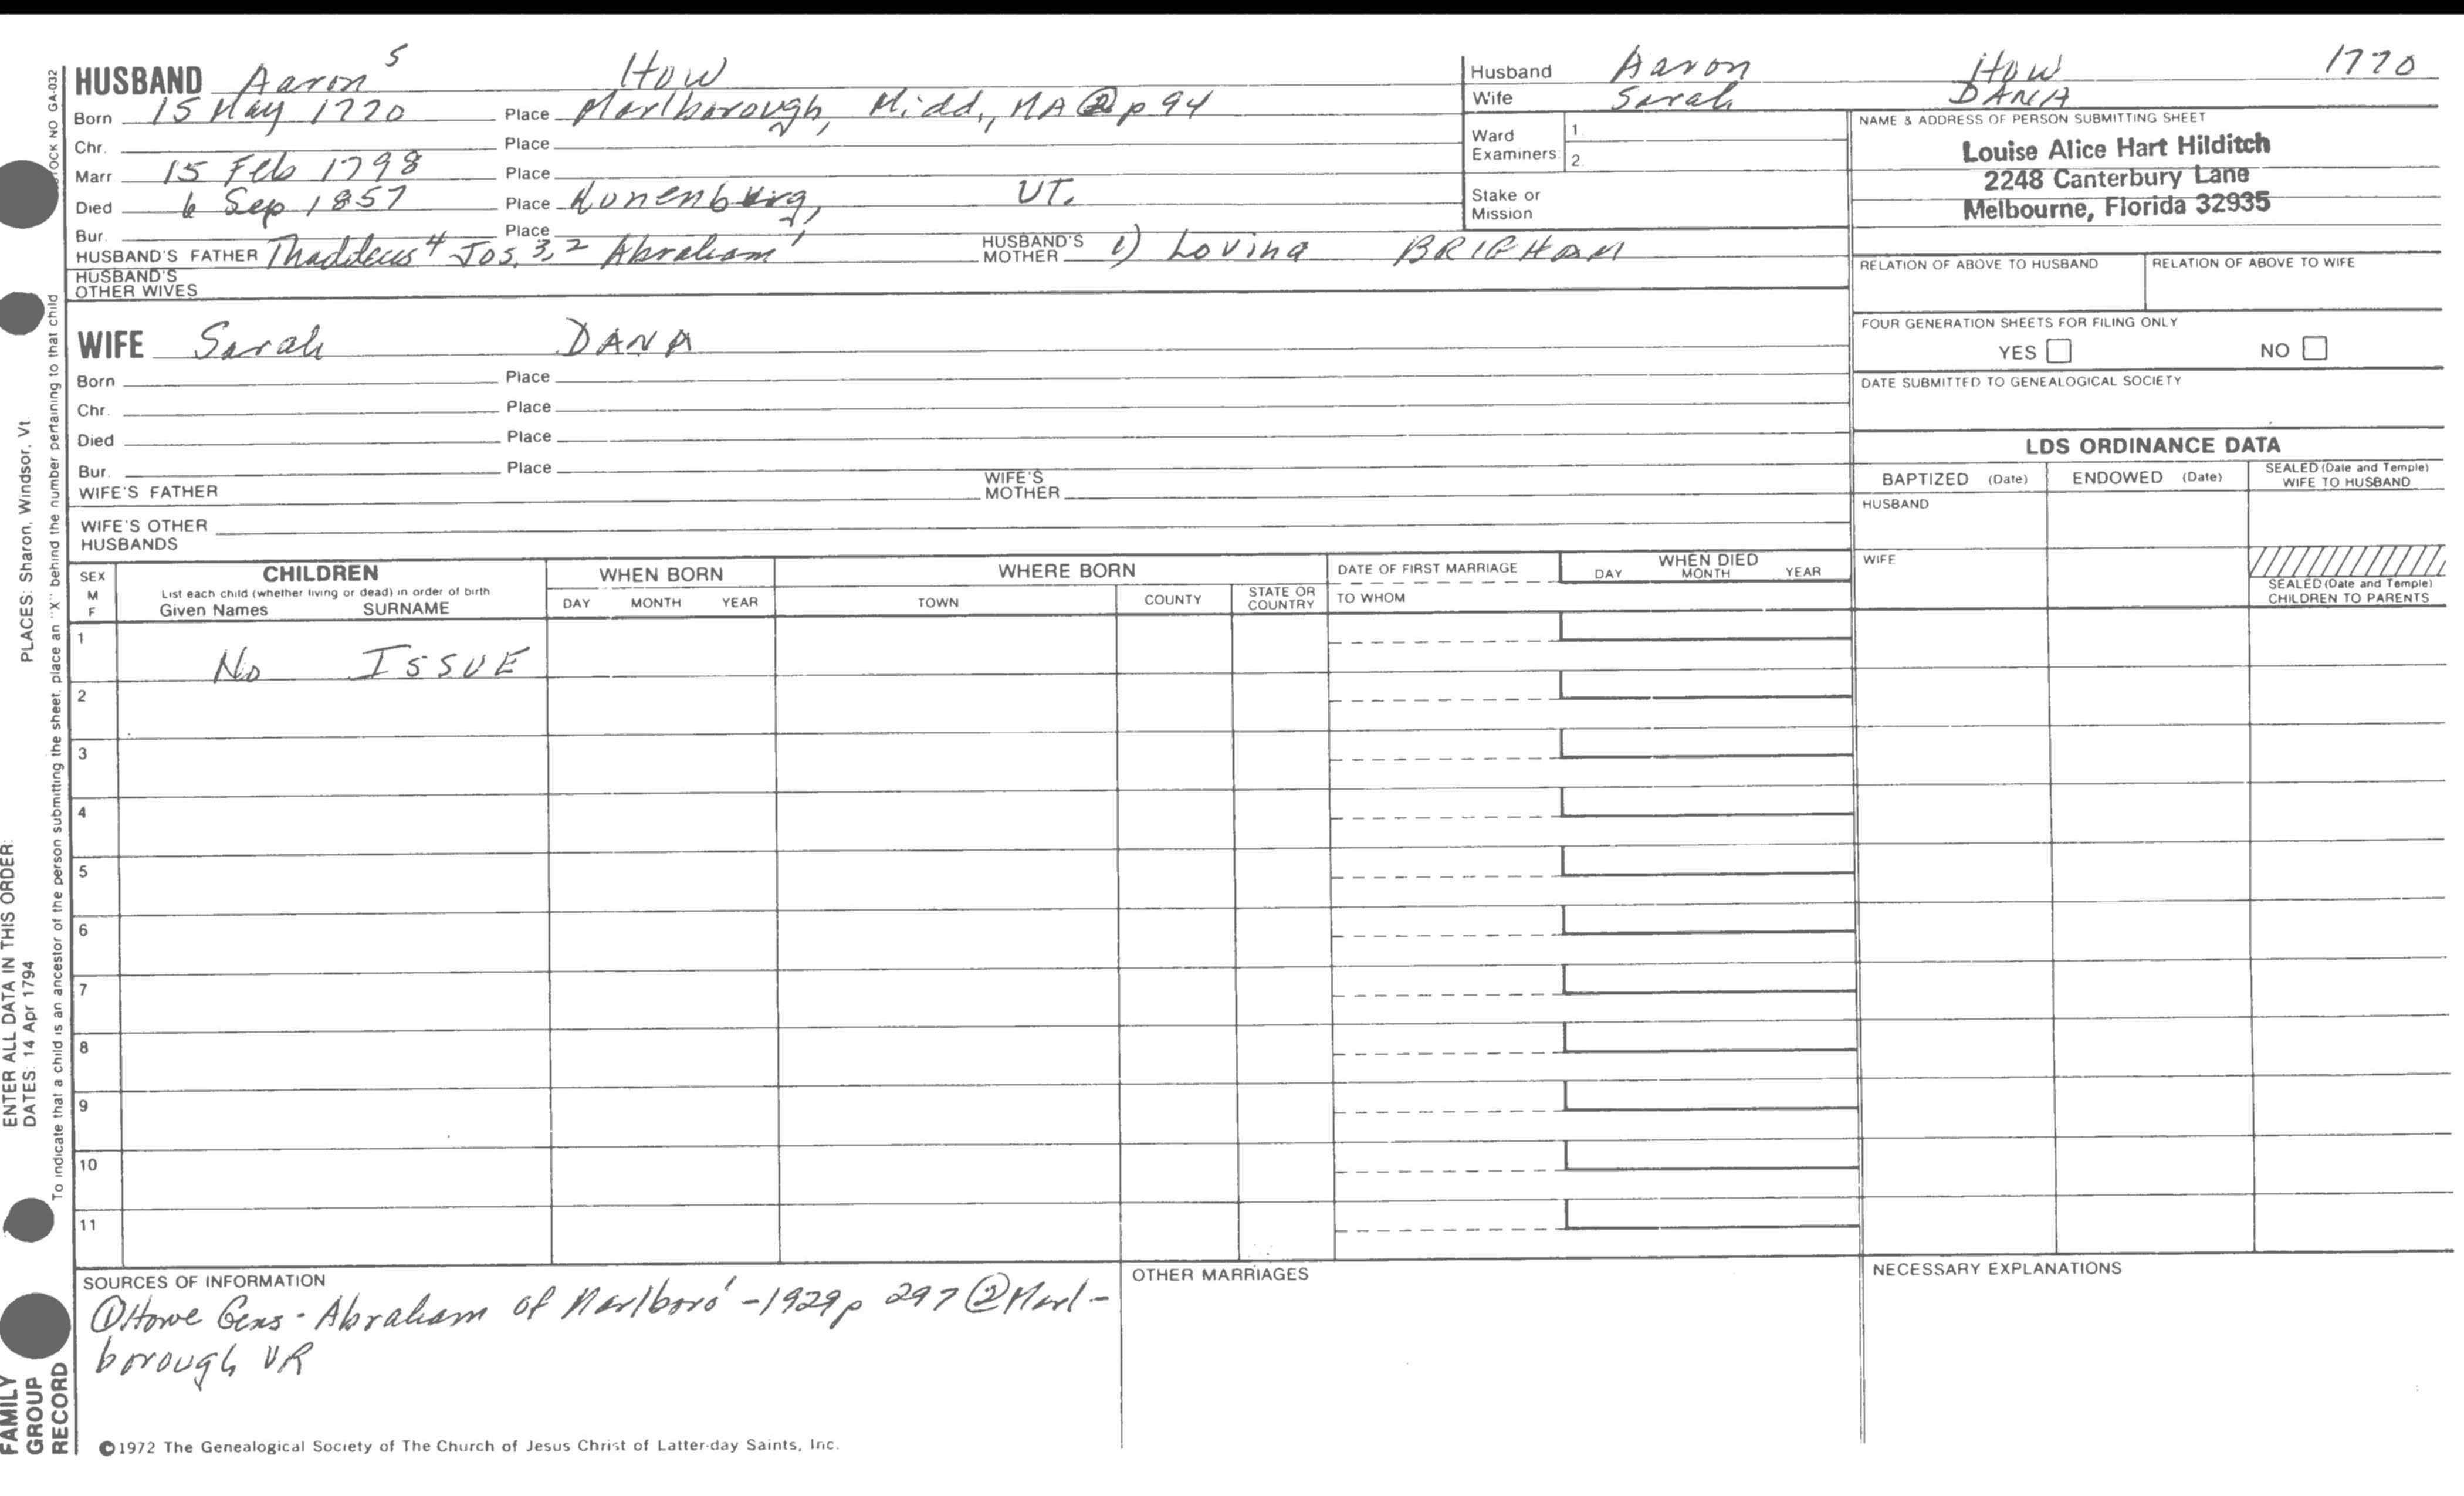 HUSBAND Aaron 5 How
Born 15 May 1770 Place Marlborough, Midd., MA ② p 94
Chr. Place
Marr 15 Feb 1798 Place
Died 6 Sep 1857 Place Lunenburg, VT.
Bur. Place
HUSBAND'S FATHER Thaddeus 4 Jos, 3, 2 Abraham 1 HUSBAND'S MOTHER 1) Lovina BRIGHAM
HUSBAND'S OTHER WIVES
WIFE Sarah DANA
Born Place
Chr. Place
Died Place
Bur. Place
WIFE'S FATHER WIFE'S MOTHER
WIFE'S OTHER HUSBANDS
Husband Aaron How 1770
Wife Sarah DANA
Ward Examiners 1.
2.
Stake or Mission
NAME & ADDRESS OF PERSON SUBMITTING SHEET
Louise Alice Hart Hilditch
2248 Canterbury Lane
Melbourne, Florida 32935
RELATION OF ABOVE TO HUSBAND RELATION OF ABOVE TO WIFE
FOUR GENERATION SHEETS FOR FILING ONLY
YES NO
DATE SUBMITTED TO GENEALOGICAL SOCIETY
LDS ORDINANCE DATA
BAPTIZED (Date) ENDOWED (Date) SEALED (Date and Temple) WIFE TO HUSBAND
HUSBAND
WIFE
SEALED (Date and Temple) CHILDREN TO PARENTS
SEX M F
CHILDREN
List each child (whether living or dead) in order of birth
Given Names SURNAME
WHEN BORN
DAY MONTH YEAR
WHERE BORN
TOWN COUNTY STATE OR COUNTRY
DATE OF FIRST MARRIAGE
TO WHOM
WHEN DIED
DAY MONTH YEAR
1 No ISSUE
2
3
4
5
6
7
8
9
10
11
SOURCES OF INFORMATION
① Howe Gens - Abraham of Marlboro' - 1929 p 297 ② Marl-
borough VR
OTHER MARRIAGES
NECESSARY EXPLANATIONS
©1972 The Genealogical Society of The Church of Jesus Christ of Latter-day Saints, Inc.
FAMILY
GROUP
RECORD
ENTER ALL DATA IN THIS ORDER:
DATES: 14 Apr 1794 PLACES: Sharon, Windsor, Vt.
To indicate that a child is an ancestor of the person submitting the sheet, place an "X" behind the number pertaining to that child
OCK NO GA-032